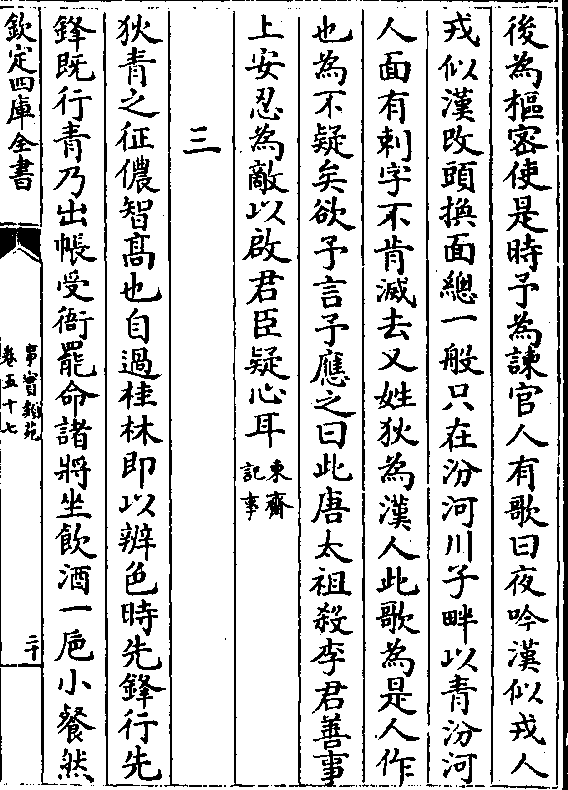 後為樞密使是時予為諫官人有歌曰夜吟漢似戎人
戎似漢改頭換面總一般只在汾河川子畔以青汾河
人面有刺字不肯滅去又姓狄為漢人此歌為是人作
也為不疑矣欲予言予應之曰此唐太祖殺李君善事
上安忍為敵以啟君臣疑心耳東齋記事
三
狄青之征儂智高也自過桂林即以辨色時先鋒行先
鋒既行青乃出帳受衙罷命諸將坐飲酒一巵小餐然
欽定四庫全書
事實類苑
卷五十七
二十